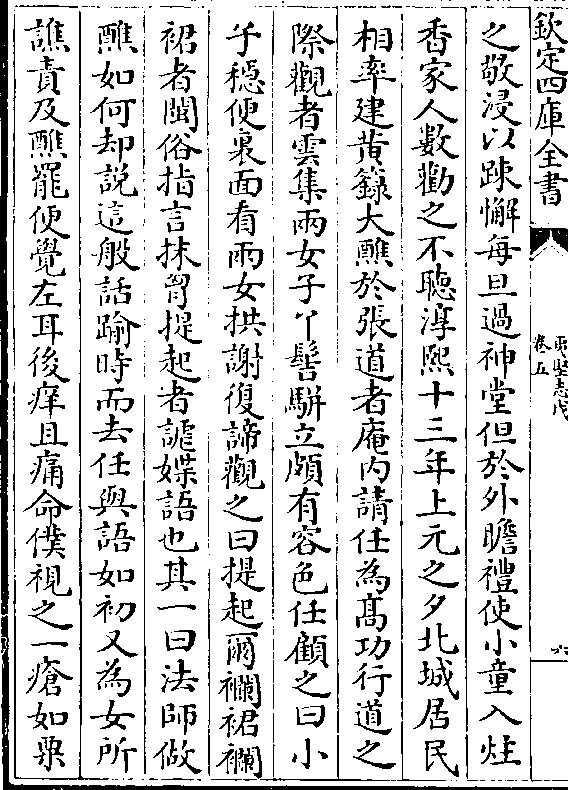 欽定四庫全書
夷堅志戊
卷五
之敬浸以踈懈每旦過神堂但於外瞻禮使小童入炷
香家人數勸之不聽淳熙十三年上元之夕北城居民
相率建黄籙大醮於張道者庵内請任為髙功行道之
際觀者雲集兩女子丫髻駢立頗有容色任顧之曰小
子穏便裏面看兩女拱謝復諦觀之曰提起爾襴裙襴
裙者閩俗指言抹胷提起者謔媟語也其一曰法師做
醮如何却説這般話踰時而去任與語如初又為女所
譙責及醮罷便覺左耳後痒且痛命僕視之一瘡如粟